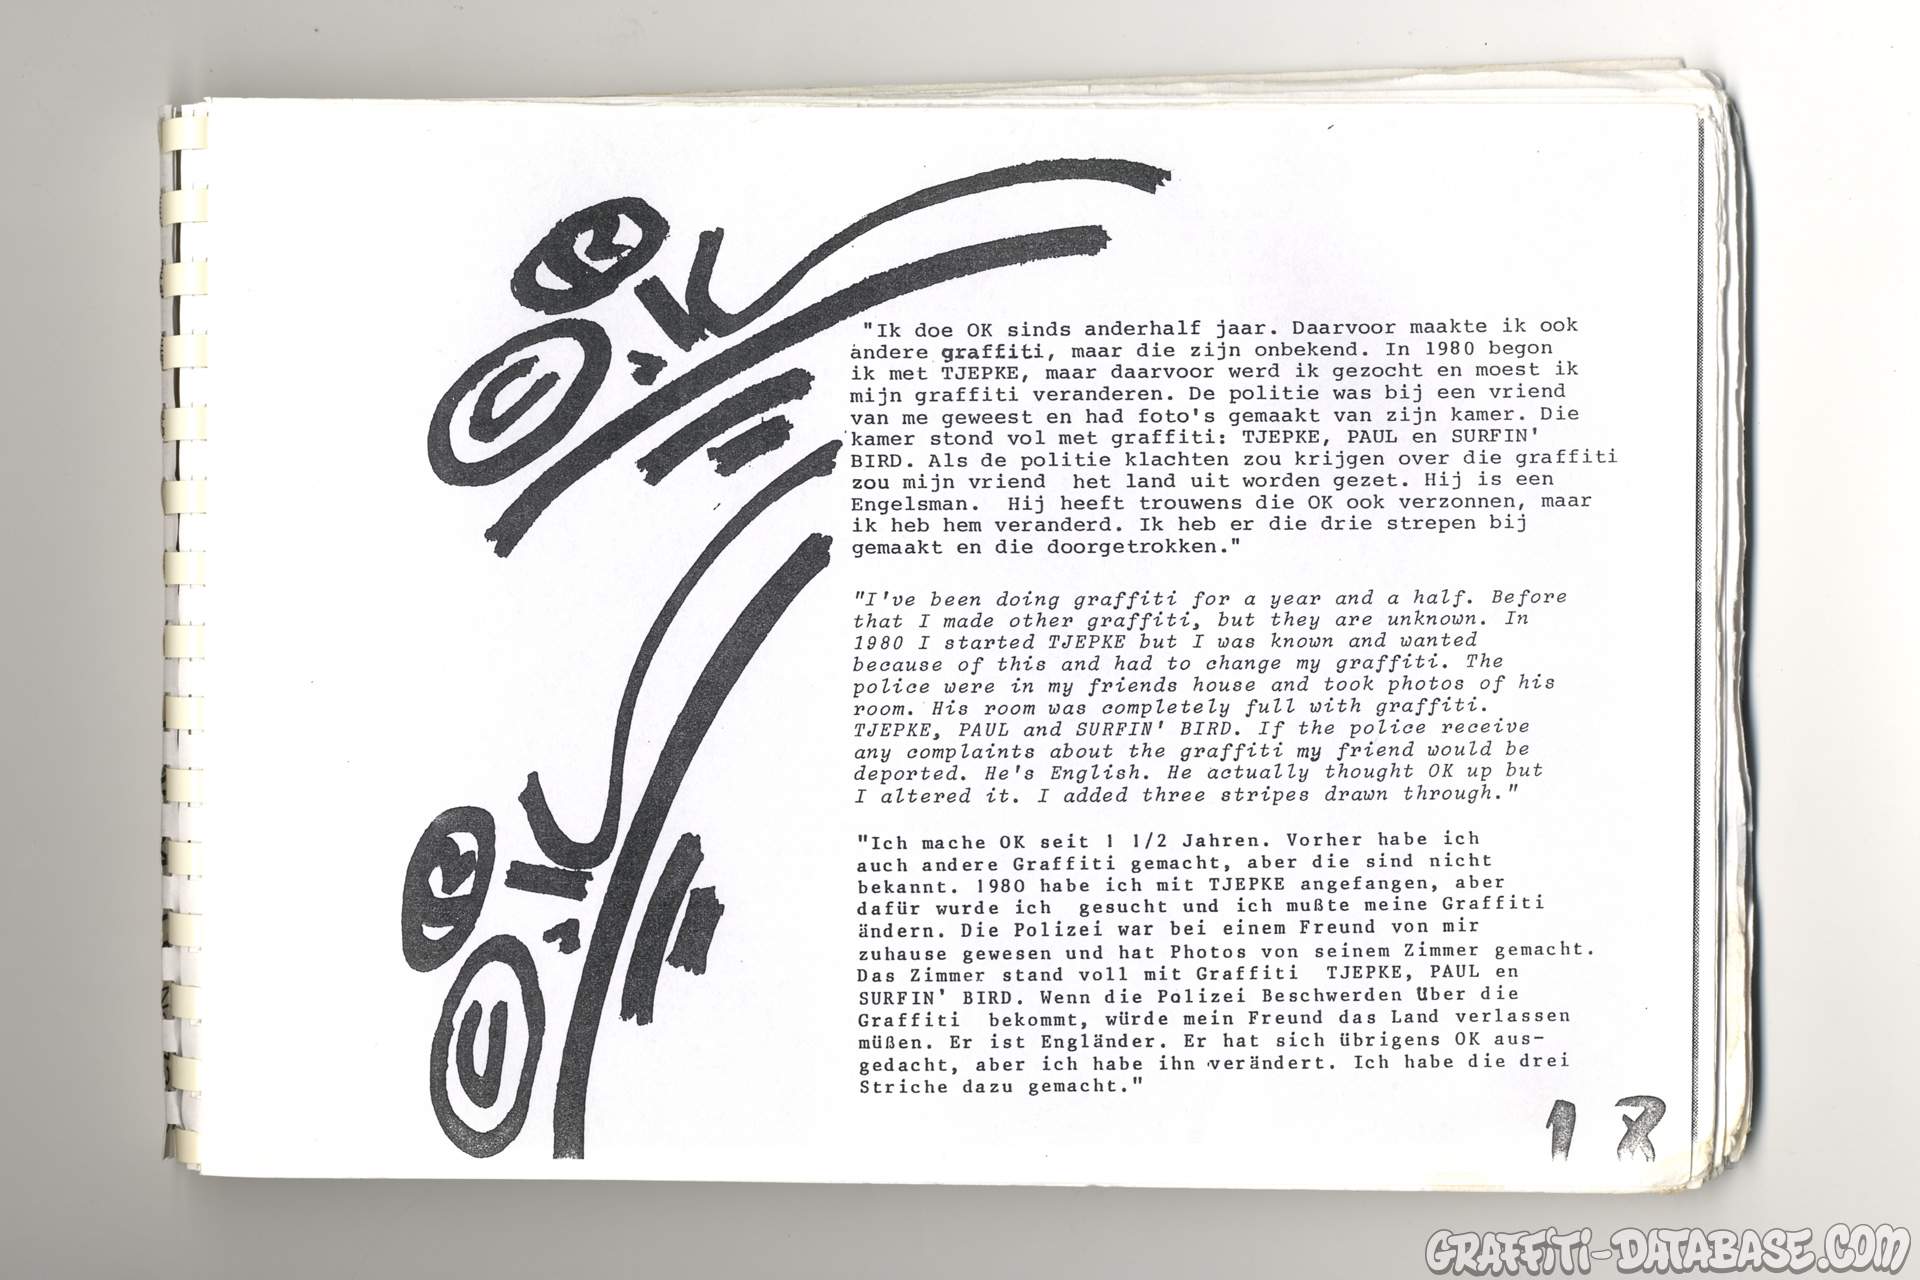 OK
"Ik doe OK sinds anderhalf jaar. Daarvoor maakte ik ook
andere graffiti, maar die zijn onbekend. In 1980 begon
ik met TJEPKE, maar daarvoor werd ik gezocht en moest ik
mijn graffiti veranderen. De politie was bij een vriend
van me geweest en had foto's gemaakt van zijn kamer. Die
kamer stond vol met graffiti: TJEPKE, PAUL en SURFIN'
BIRD. Als de politie klachten zou krijgen over die graffiti
zou mijn vriend  het land uit worden gezet. Hij is een
Engelsman.  Hij heeft trouwens die OK ook verzonnen, maar
ik heb hem veranderd. Ik heb er die drie strepen bij
gemaakt en die doorgetrokken."
"I've been doing graffiti for a year and a half. Before
that I made other graffiti, but they are unknown. In
1980 I started TJEPKE but I was known and wanted
because of this and had to change my graffiti. The
police were in my friends house and took photos of his
room. His room was completely full with graffiti.
TJEPKE, PAUL and SURFIN' BIRD. If the police receive
any complaints about the graffiti my friend would be
deported. He's English. He actually thought OK up but
I altered it. I added three stripes drawn through."
"Ich mache OK seit 1 1/2 Jahren. Vorher habe ich
auch andere Graffiti gemacht, aber die sind nicht
bekannt. 1980 habe ich mit TJEPKE angefangen, aber
dafür wurde ich  gesucht und ich mußte meine Graffiti
ändern. Die Polizei war bei einem Freund von mir
zuhause gewesen und hat Photos von seinem Zimmer gemacht.
Das Zimmer stand voll mit Graffiti  TJEPKE, PAUL en
SURFIN' BIRD. Wenn die Polizei Beschwerden Über die
Graffiti  bekommt, würde mein Freund das Land verlassen
müßen. Er ist Engländer. Er hat sich übrigens OK aus-
gedacht, aber ich habe ihn verändert. Ich habe die drei
Striche dazu gemacht."
OK
18
GRAFFITI-DATABASE.COM